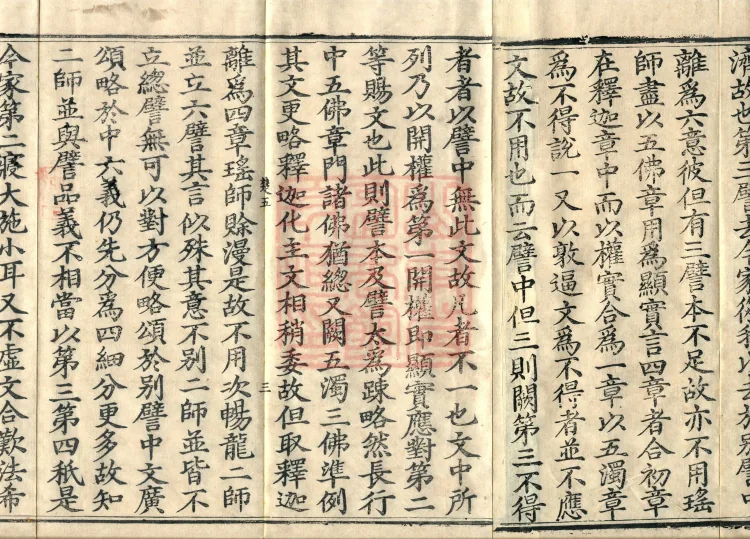 離爲六意彼但有三譬本不足故亦不用瑤
師盡以五佛章用爲顯實言四章者合初章
在釋迦章中而以權實合爲一章以五濁章
爲不得說一又以敦逼文爲不得者並不應
文故不用也而云譬中但三則闕第三不得
者者以譬中無此文故凡者不一也文中所
列乃以開權爲第一開權即顯實應對第二
等賜文也此則譬本及譬太爲踈略然長行
中五佛章門諸佛猶總又闕五濁三佛準例
其文更略釋迦化主文相稍委故但取釋迦
三
離爲四章瑤師賒漫是故不用次暢龍二師
並立六譬其言似殊其意不別二師並皆不
立總譬無可以對方便略頌於別譬中文廣
頌略於中六義仍先分爲四細分更多故知
二師並與譬品義不相當以第三第四秪是
今家第二寢大施小耳又不虛文合歎法希